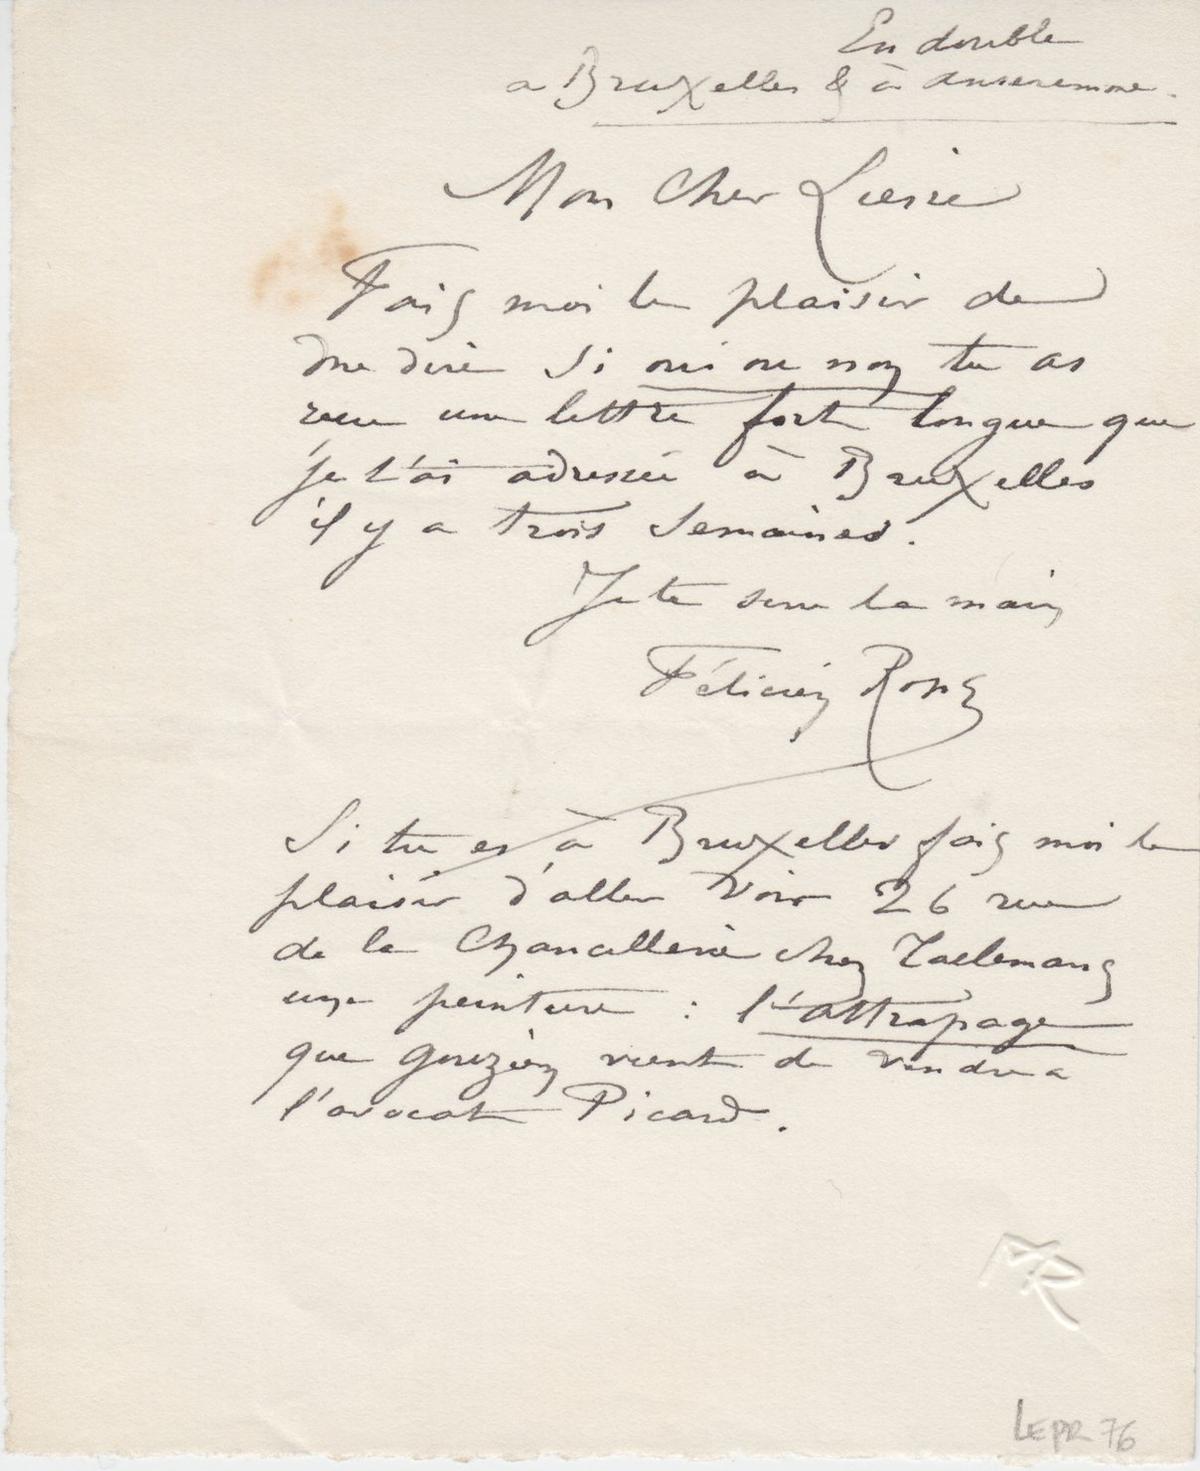 En double
a Bruxelles & à Anseremme.
Mon Cher Liesse
Fais moi le plaisir de
me dire si oui ou non tu as
reçu une lettre fort longue que
je t'ai adressée à Bruxelles
il y a trois semaines.
Je te serre la main
Félicien Rops
Si tu es à Bruxelles fais moi le
plaisir d'aller voir 26 rue
de la Chancellerie chez Taelemans
une peinture : l'attrapage
que Gouzien vient de vendre a
l'avocat Picard.
LEPR 76